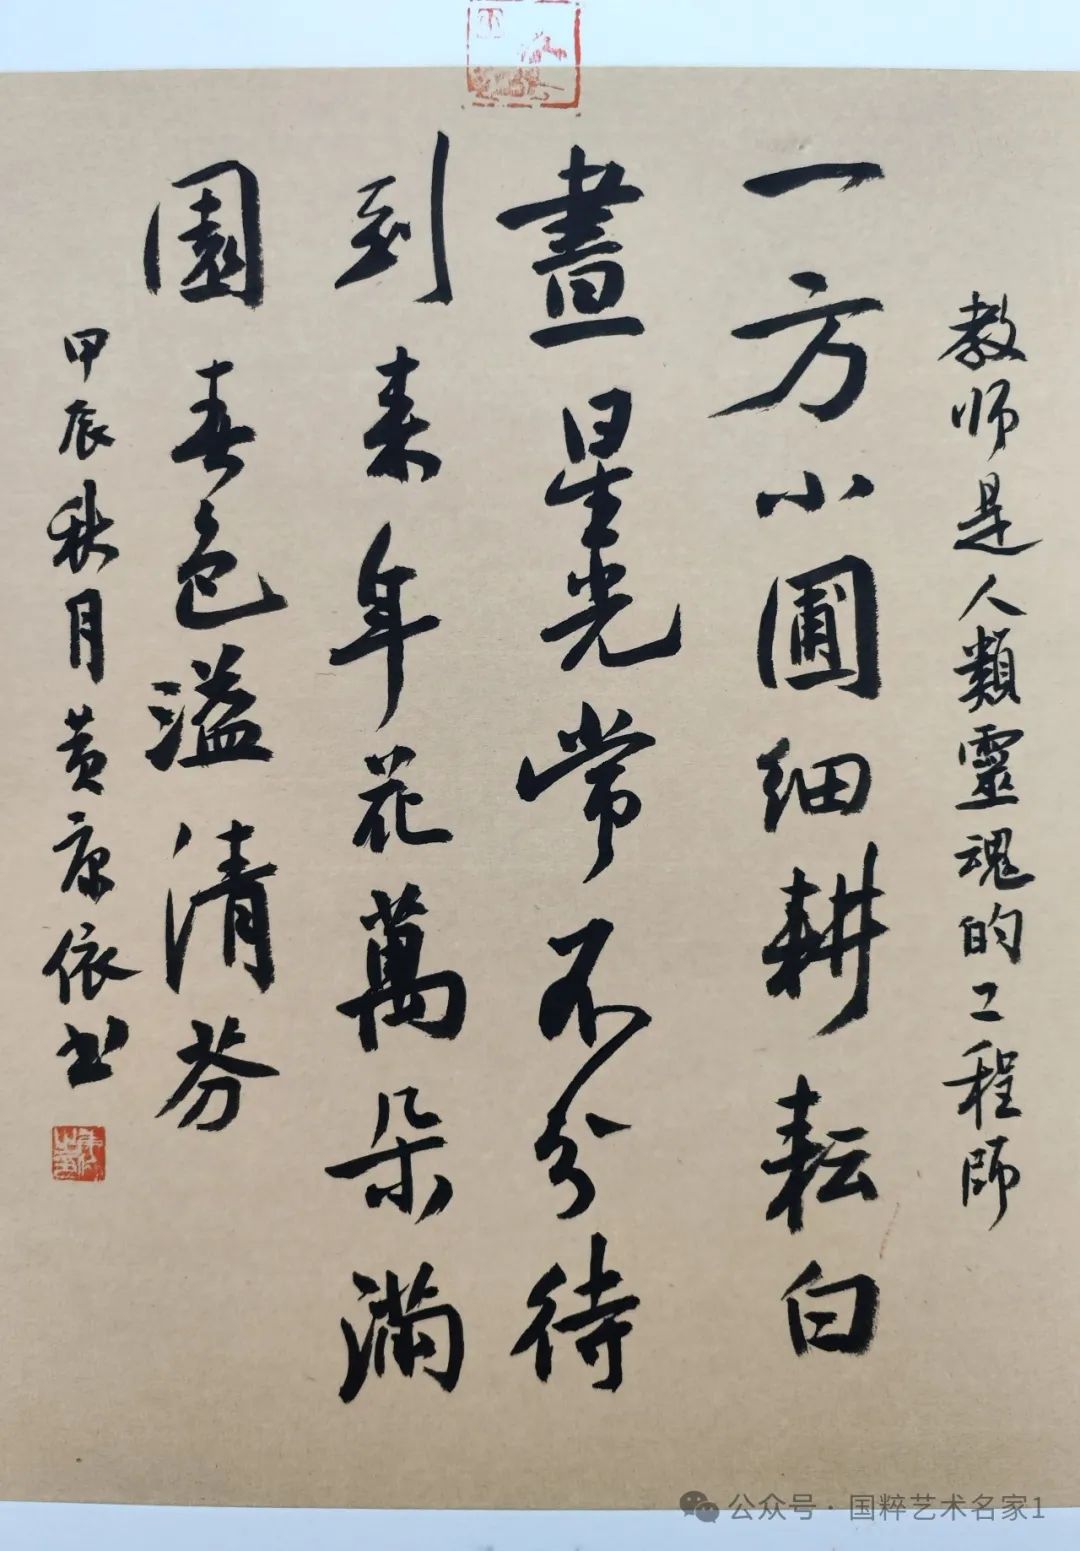 教师是人類靈魂的工程師
一方小圃细耕耘白
晝星光常不分待
到来年花萬朵满
園春色溢清芬
甲辰秋月黄康依书
公众号·国粹艺术名家1